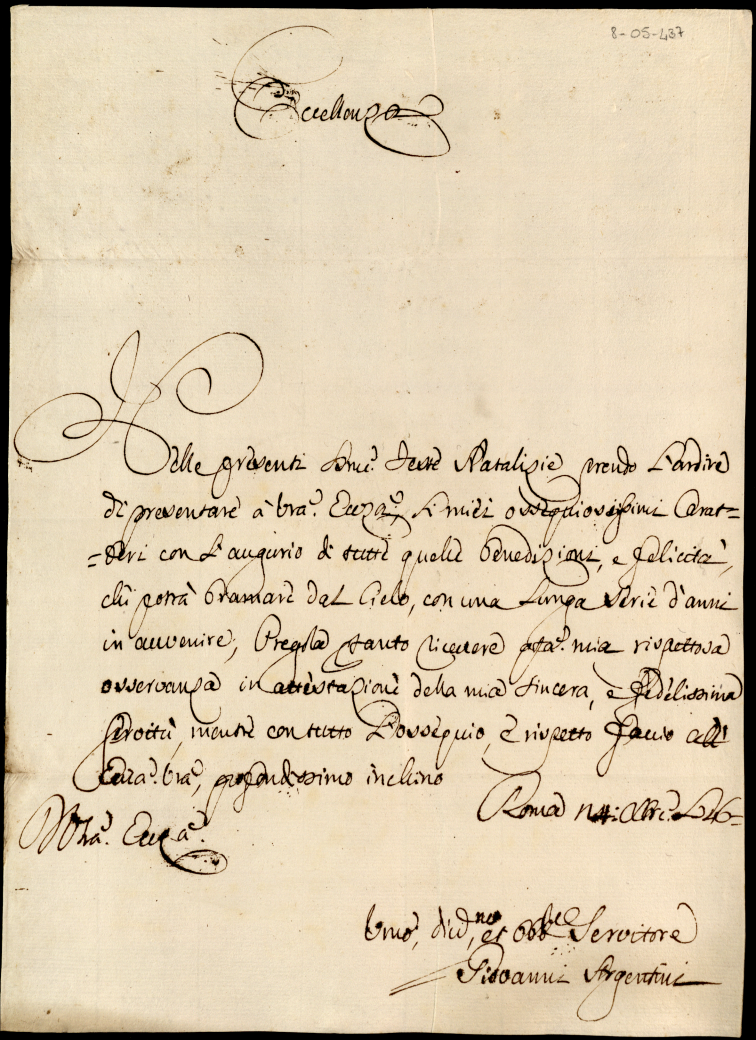 8-05-437
Eccellenza
Nelle presenti Sme. Feste Natalizie prendo L'ardire
di presentare à Vra. Ecza. Li miei ossequiosissimi Carat=
=teri con L'augurio di tutte quelle benedizioni, e felicità,
chi potrà bramare dal Cielo, con una Lunga serie d'anni
in avvenire, Pregola tanto ricevere mia rispettosa
osservanza in attestazione della mia sincera, e fedelissima
servitù, mentre con tutto L'ossequio, è rispetto faccio all'
Ecza. Vra, profondissimo inchino
Roma
Di Vra. Ecza.
Umo, et obb Servitore
Giovanni Argentini